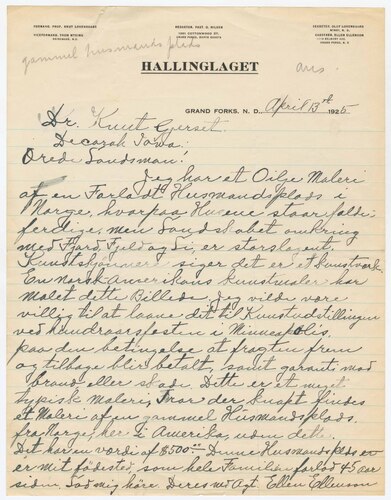 FORMAND, PROF. KNUT LØKENSGAARD
HALLINGLAGET
gammel husmands plads
ans.
GRAND FORKS, N. D., April 13th 1925
Dr. Knut Gjerset
Decorah Iowa,
Ærede Landsman:
Jeg har et Oilje Maleri
af en Forladt Husmandsplads i
Norge, hvorpaa Husene staar falde-
færdige, men Landskabet omkring
med Fjord Fjeld og Li, er storslagent.
Kunstskjønnere siger det er et kunstverk
En norsk Amerikans kunstmaler har
malet dette Billede. Jeg vilde være
villig til at laane det til Kunstudstillingen
ved hundreaarsfesten i Minneapolis,
paa den betingelse at fragten frem
og tilbage blir betalt, samt garanti mod
brand eller skade. Dette er et meget
typisk maleri, Tror der knapt findes
et Maleri af en gammel Husmandsplads,
fra Norge, her i Amerika, uden dette.
Det har en værdi af $500.00 Denne Husmandsplads er
er mit fødested, som hele Familien forlod 45 aar
siden, Lad mig høre Deres med Agt Ellen Ellenson